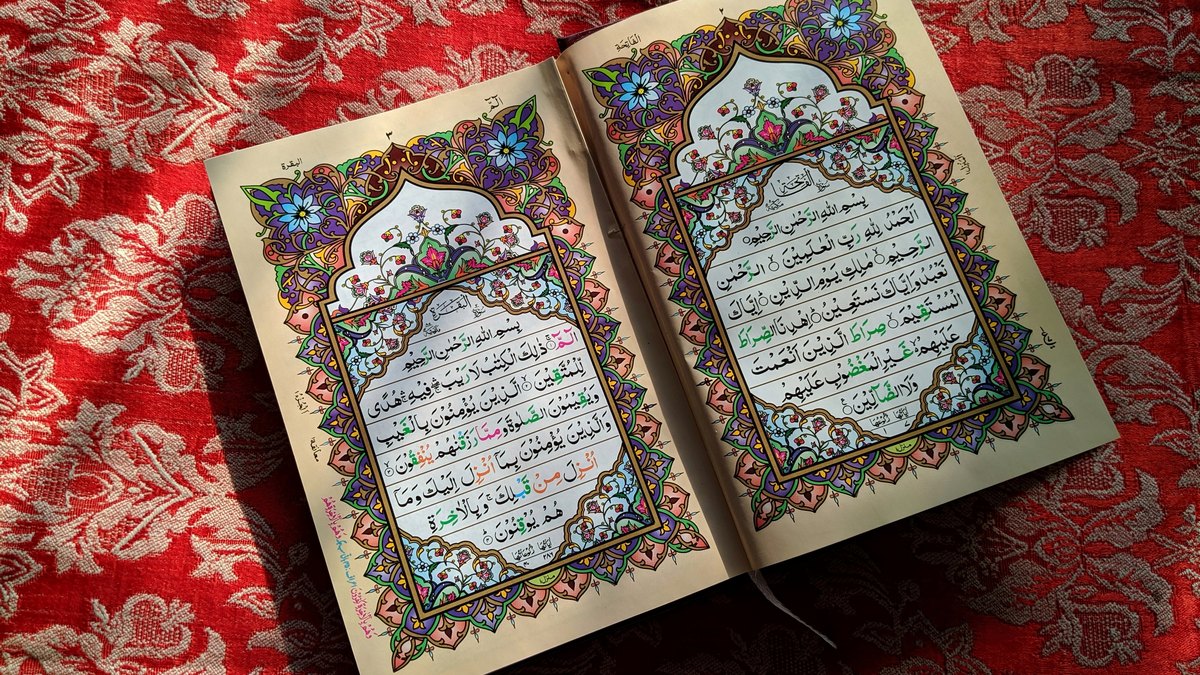 ٢
الفاتحة
بِسْمِ اللهِ الرَّحْمٰنِ الرَّحِيْمِ
اَلْحَمْدُ لِلّٰهِ رَبِّ الْعٰلَمِيْنَ ۙ الرَّحْمٰنِ
الرَّحِيْمِ ۙ مٰلِكِ يَوْمِ الدِّيْنِ ۗ اِيَّاكَ
نَعْبُدُ وَاِيَّاكَ نَسْتَعِيْنُ ۗ اِهْدِنَا الصِّرَاطَ
الْمُسْتَقِيْمَ ۙ صِرَاطَ الَّذِيْنَ اَنْعَمْتَ
عَلَيْهِمْ غَيْرِ الْمَغْضُوْبِ عَلَيْهِمْ
وَلَا الضَّآلِّيْنَ
الٓمّٓ
٣
البقرة
بِسْمِ اللهِ الرَّحْمٰنِ الرَّحِيْمِ
الٓمّٓ ۚ ذٰلِكَ الْكِتٰبُ لَا رَيْبَ ۛ فِيْهِ ۛ هُدًى
لِّلْمُتَّقِيْنَ ۙ الَّذِيْنَ يُؤْمِنُوْنَ بِالْغَيْبِ
وَيُقِيْمُوْنَ الصَّلٰوةَ وَمِمَّا رَزَقْنٰهُمْ يُنْفِقُوْنَ ۙ
وَالَّذِيْنَ يُؤْمِنُوْنَ بِمَآ اُنْزِلَ اِلَيْكَ وَمَآ
اُنْزِلَ مِنْ قَبْلِكَ ۚ وَبِالْاٰخِرَةِ
هُمْ يُوْقِنُوْنَ